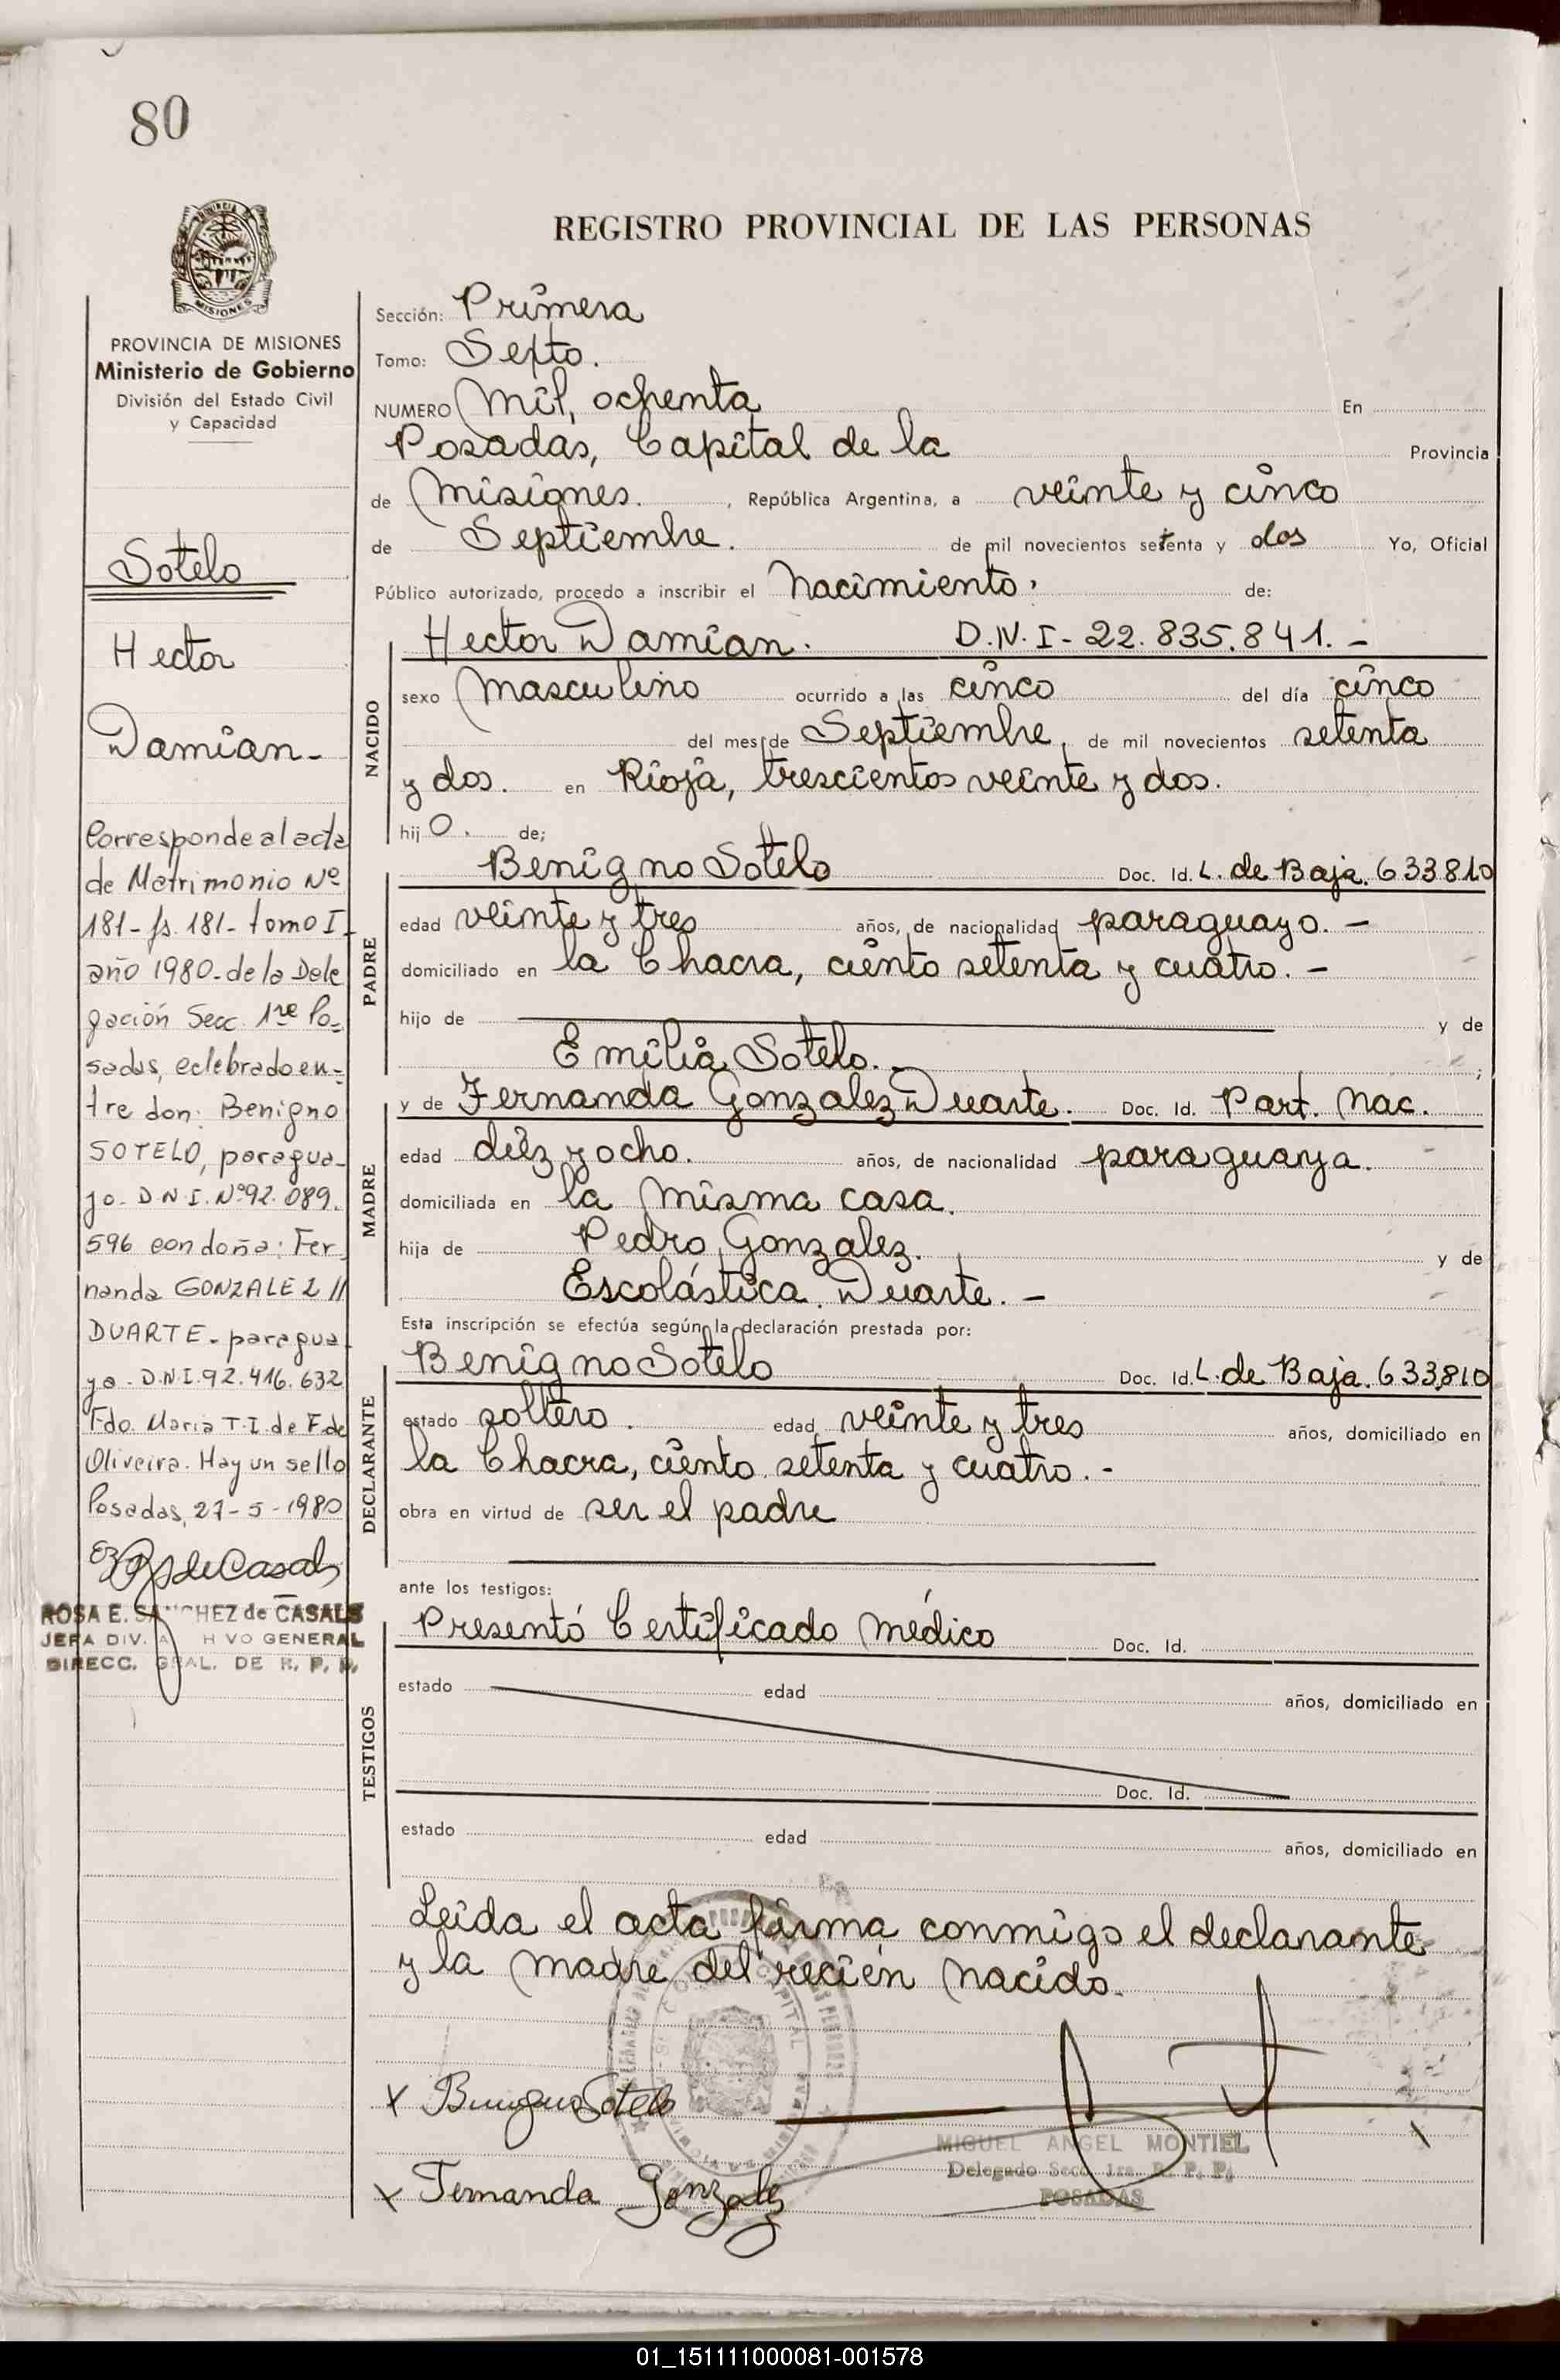 80
PROVINCIA DE MISIONES
Ministerio de Gobierno
División del Estado Civil
y Capacidad
Sotelo
Hector
Damian-
Corresponde al acta
de Matrimonio Nº
181- fs. 181- tomo I-
año 1980- de la Dele
gación Secc. 1ra Po-
sadas, celebrado en-
tre don: Benigno
SOTELO, paragua-
yo- D.N.I. Nº 92.089.
596 con doña: Fer
nanda GONZALEZ //
DUARTE- paragua
ya- D.N.I. 92.416.632
Fdo. Maria T.I. de F. de
Oliveira. Hay un sello
Posadas, 27-5-1980
ROSA E. SANCHEZ de CASALS
JEFA DIV. A HIVO GENERAL
DIRECC. GRAL. DE R. P. P.
REGISTRO PROVINCIAL DE LAS PERSONAS
Sección: Primera
Tomo: Septo.
NUMERO Mil, ochenta En
Posadas, Capital de la Provincia
de Misiones. , República Argentina, a veinte y cinco
de Septiembre. de mil novecientos setenta y dos Yo, Oficial
Público autorizado, procedo a inscribir el Nacimiento. de:
NACIDO
Hector Damian. D.N.I- 22.835.841. -
sexo Masculino ocurrido a las cinco del día cinco
del mes de Septiembre, de mil novecientos setenta
y dos. en Rioja, trescientos veinte y dos.
hij o. de;
PADRE
Benigno Sotelo Doc. Id. L. de Baja. 633810
edad veinte y tres años, de nacionalidad paraguayo. -
domiciliado en la Chacra, ciento setenta y cuatro. -
hijo de y de
Emilia Sotelo. - ;
MADRE
y de Fernanda Gonzalez Duarte. Doc. Id. Part. Nac.
edad diez y ocho. años, de nacionalidad paraguaya.
domiciliada en la misma casa.
hija de Pedro Gonzalez. y de
Escolástica Duarte. -
Esta inscripción se efectúa según la declaración prestada por:
DECLARANTE
Benigno Sotelo Doc. Id. L. de Baja. 633,810
estado soltero. edad veinte y tres años, domiciliado en
la Chacra, ciento setenta y cuatro. -
obra en virtud de ser el padre
ante los testigos:
TESTIGOS
Presentó Certificado Médico Doc. Id.
estado edad años, domiciliado en
Doc. Id.
estado edad años, domiciliado en
Leída el acta firma conmigo el declarante
y la madre del recién nacido.
x Benigno Sotelo
MIGUEL ANGEL MONTIEL
Delegado Secc. 1ra. R. P. P.
POSADAS
x Fernanda Gonzalez
01_151111000081-001578